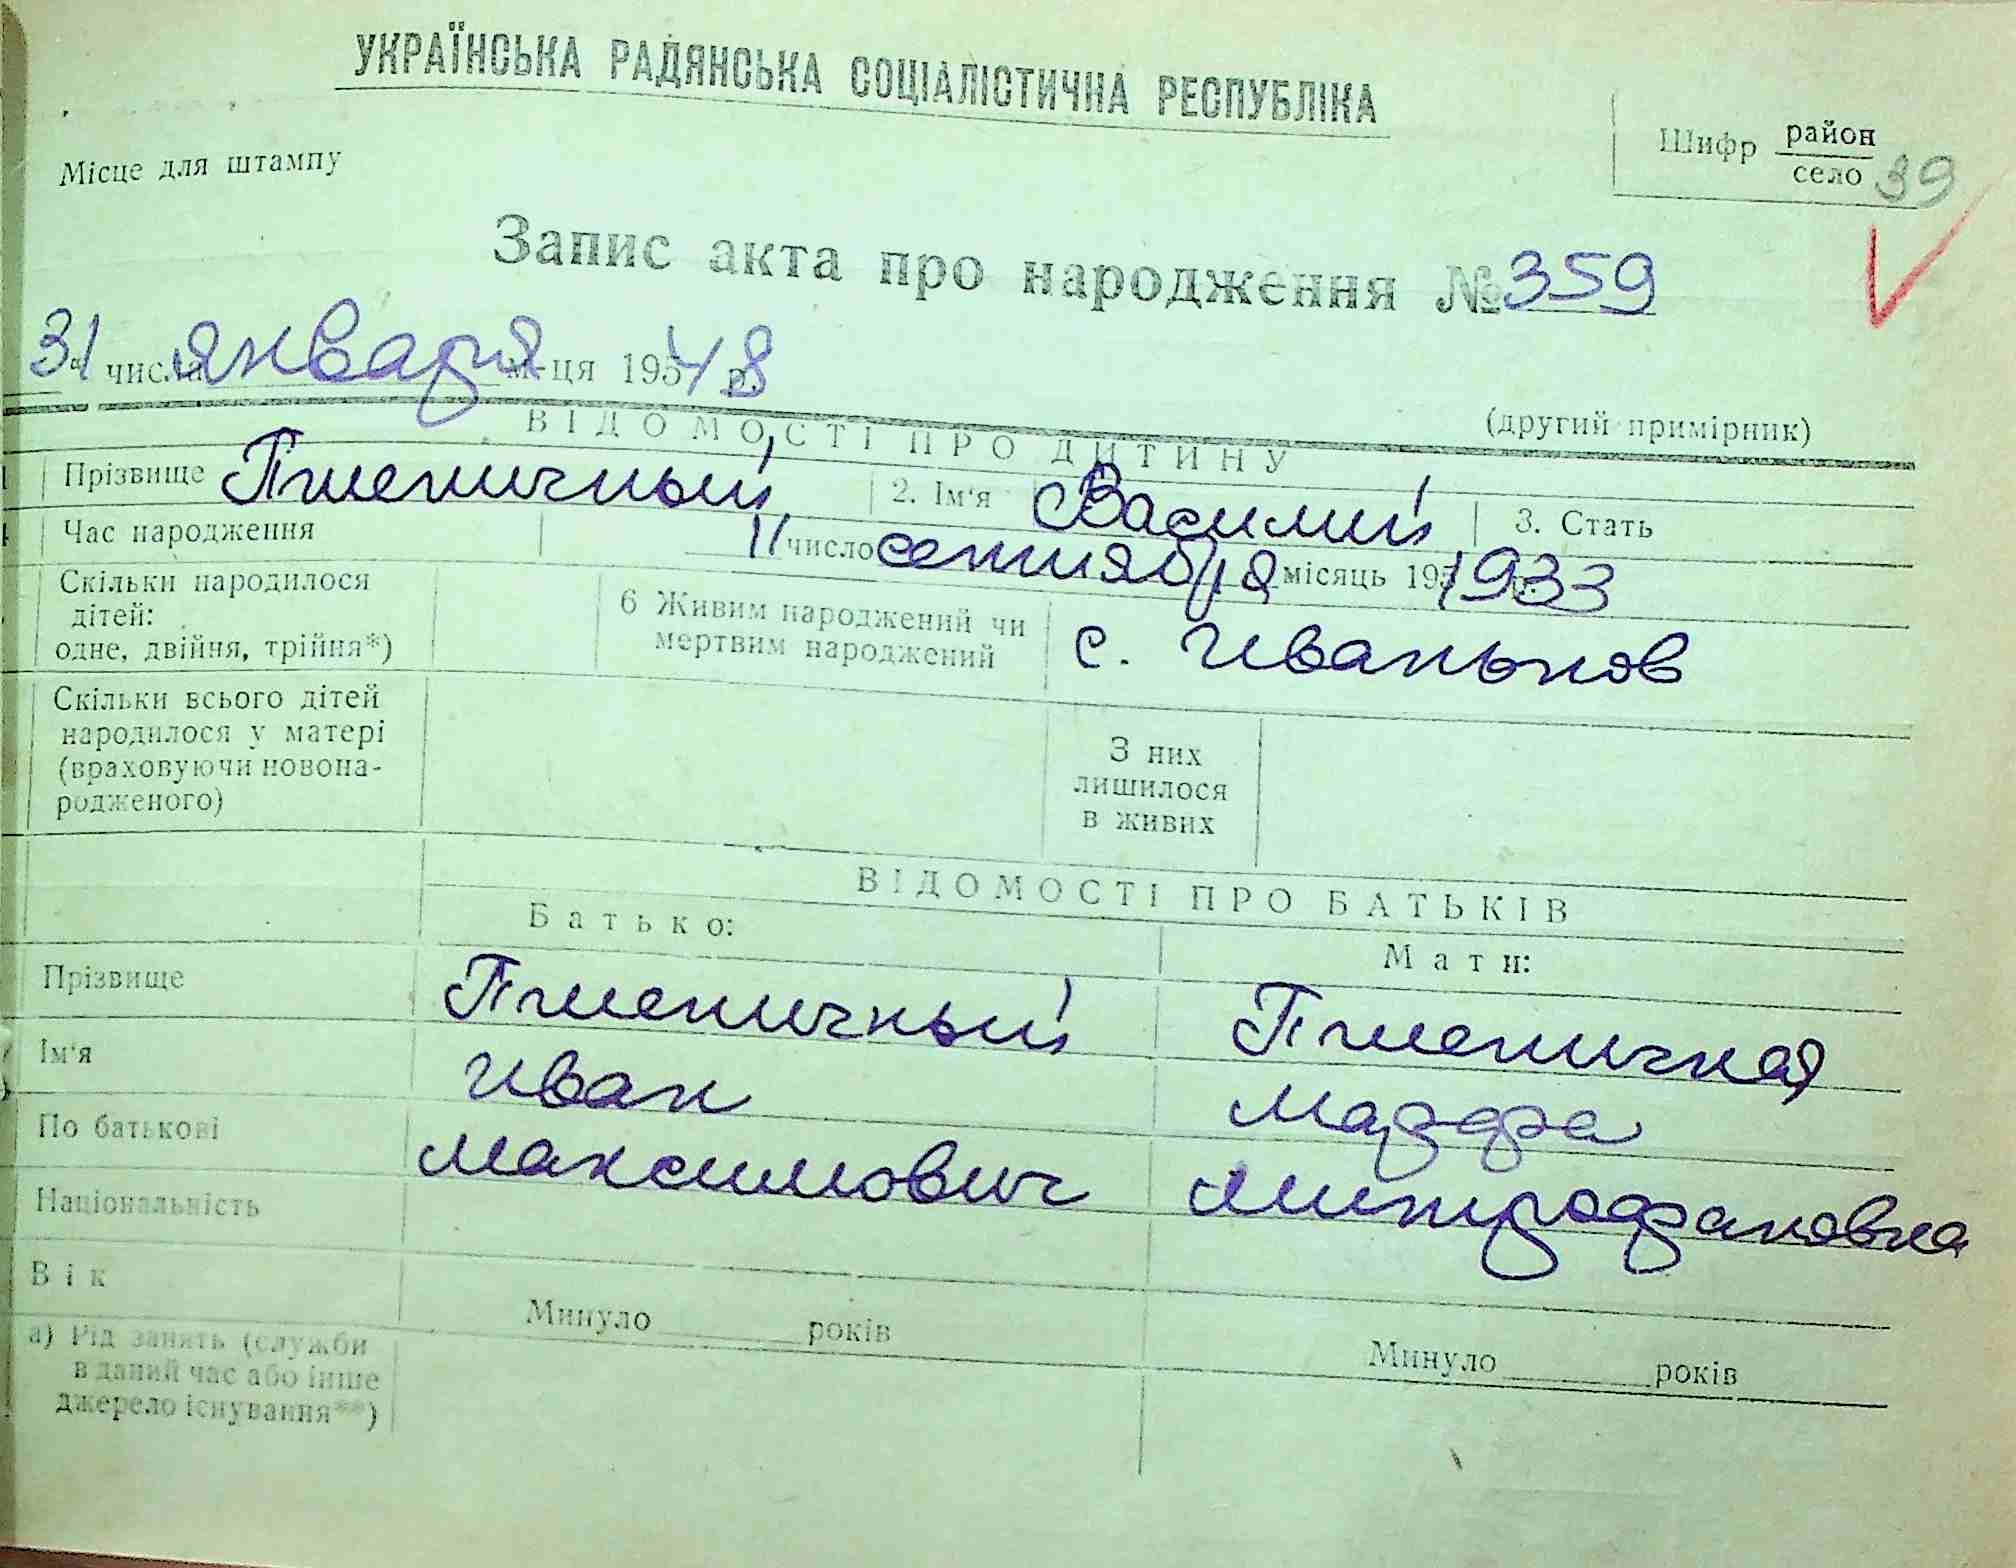 УКРАЇНСЬКА РАДЯНСЬКА СОЦІАЛІСТИЧНА РЕСПУБЛІКА
Місце для штампу
Шифр район
село 39
Запис акта про народження № 359
31 числа января м-ця 195 48 р.
(другий примірник)
ВІДОМОСТІ ПРО ДИТИНУ
Прізвище Пшеничный 2. Ім'я Василий 3. Стать
Час народження 11 число сентября місяць 195 1933 р.
Скільки народилося дітей: одне, двійня, трійня*) 6 Живим народжений чи мертвим народжений с. Иваньков
Скільки всього дітей народилося у матері (враховуючи новонародженого) З них лишилося в живих
ВІДОМОСТІ ПРО БАТЬКІВ
Батько: Мати:
Прізвище Пшеничный Пшеничная
Ім'я Иван Марфа
По батькові Максимович Митрофановна
Національність
Вік Минуло років Минуло років
а) Рід занять (служби в даний час або інше джерело існування**)